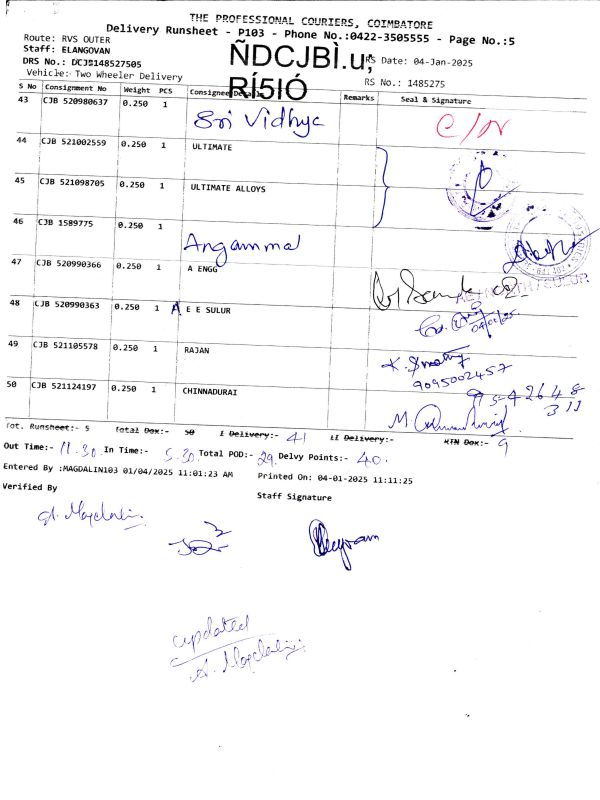 THE PROFESSIONAL COURIERS, COIMBATORE
Delivery Runsheet - P103 - Phone No.:0422-3505555 - Page No.:5
Route: RVS OUTER
Staff: ELANGOVAN
DRS No.: DCJB148527505
ÑDCJBÌ.u;
RÍ5IÓ
RS Date: 04-Jan-2025
Vehicle: Two Wheeler Delivery
RS No.: 1485275
S No Consignment No Weight PCS Consignee Details Remarks Seal & Signature
43 CJB 520980637 0.250 1 Sri Vidhya
44 CJB 521002559 0.250 1 ULTIMATE
45 CJB 521098705 0.250 1 ULTIMATE ALLOYS
46 CJB 1589775 0.250 1 Angammal
47 CJB 520990366 0.250 1 A ENGG
48 CJB 520990363 0.250 1 A E E SULUR
04/01/25
49 CJB 521105578 0.250 1 RAJAN
9095002457
50 CJB 521124197 0.250 1 CHINNADURAI
Tot. Runsheet:- 5 Total Dox:- 50 I Delivery:- 41 II Delivery:- RTN Dox:- 9
Out Time:- 11.30 In Time:- 5.30 Total POD:- 29 Delvy Points:- 40
Entered By :MAGDALIN103 01/04/2025 11:01:23 AM Printed On: 04-01-2025 11:11:25
Verified By Staff Signature
A. Magdalin
updated
A. Magdalin